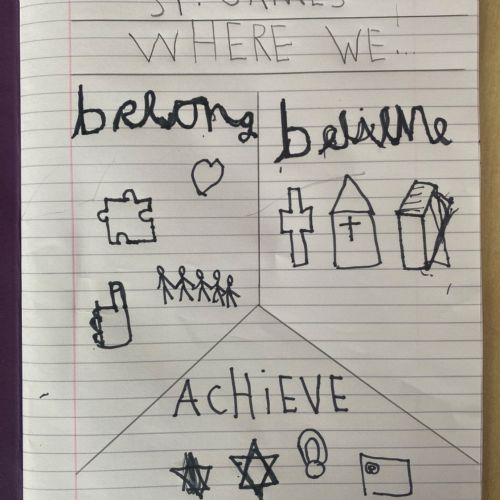 ST. JAMES
WHERE WE...
belong
believe
ACHIEVE